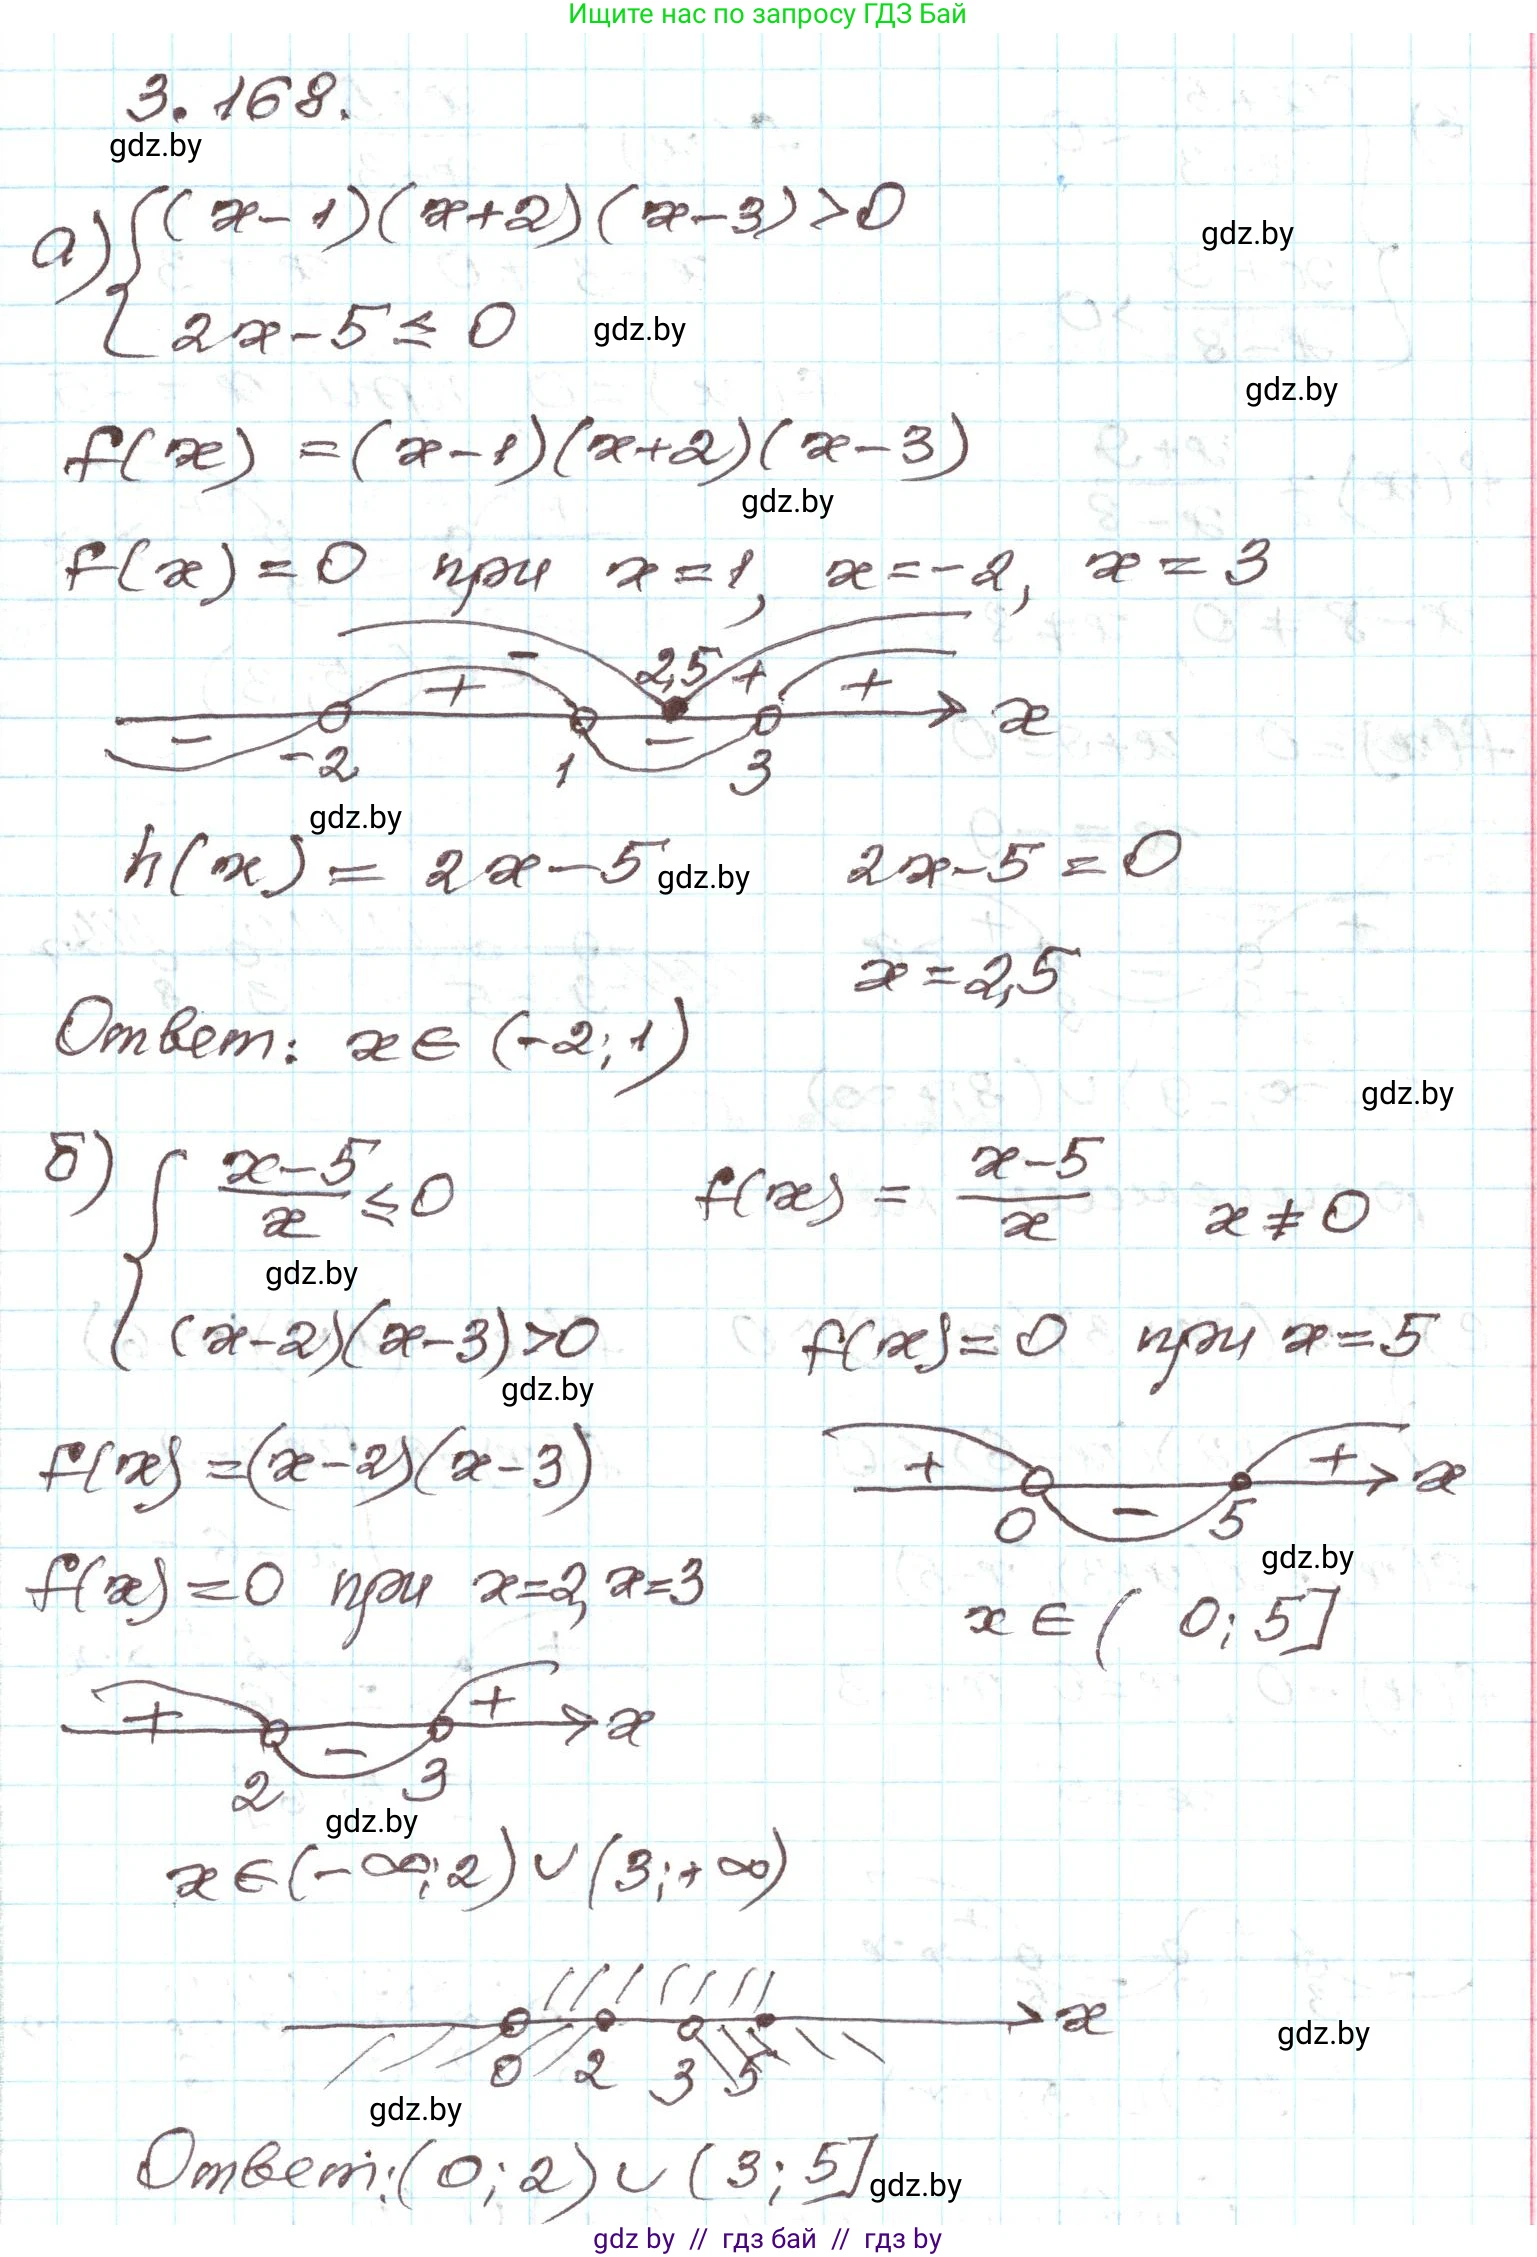 Ищите нас по запросу ГДЗ Бай
3.168.
gdz.by
а) { (x-1)(x+2)(x-3)>0
gdz.by
2x-5≤0 gdz.by
gdz.by
f(x) =(x-1)(x+2)(x-3)
gdz.by
f(x)=0 при x=1, x=-2, x=3
- 2,5 +
+ +
- - x
-2 1 3
gdz.by
h(x)= 2x-5 gdz.by 2x-5=0
x=2,5
Ответ: x∈ (-2;1)
gdz.by
б) { x-5/x ≤0 f(x) = x-5/x x≠0
gdz.by
(x-2)(x-3)>0 f(x)=0 при x=5
gdz.by
f(x)=(x-2)(x-3)
+ - + x
0 5
gdz.by
f(x)=0 при x=2, x=3
x∈( 0;5]
+ - + x
2 3
gdz.by
x∈(-∞;2)∪(3;+∞)
x
gdz.by
0 2 3 5
gdz.by
Ответ:(0;2)∪(3;5]
gdz.by
gdz by // гдз бай // гдз by